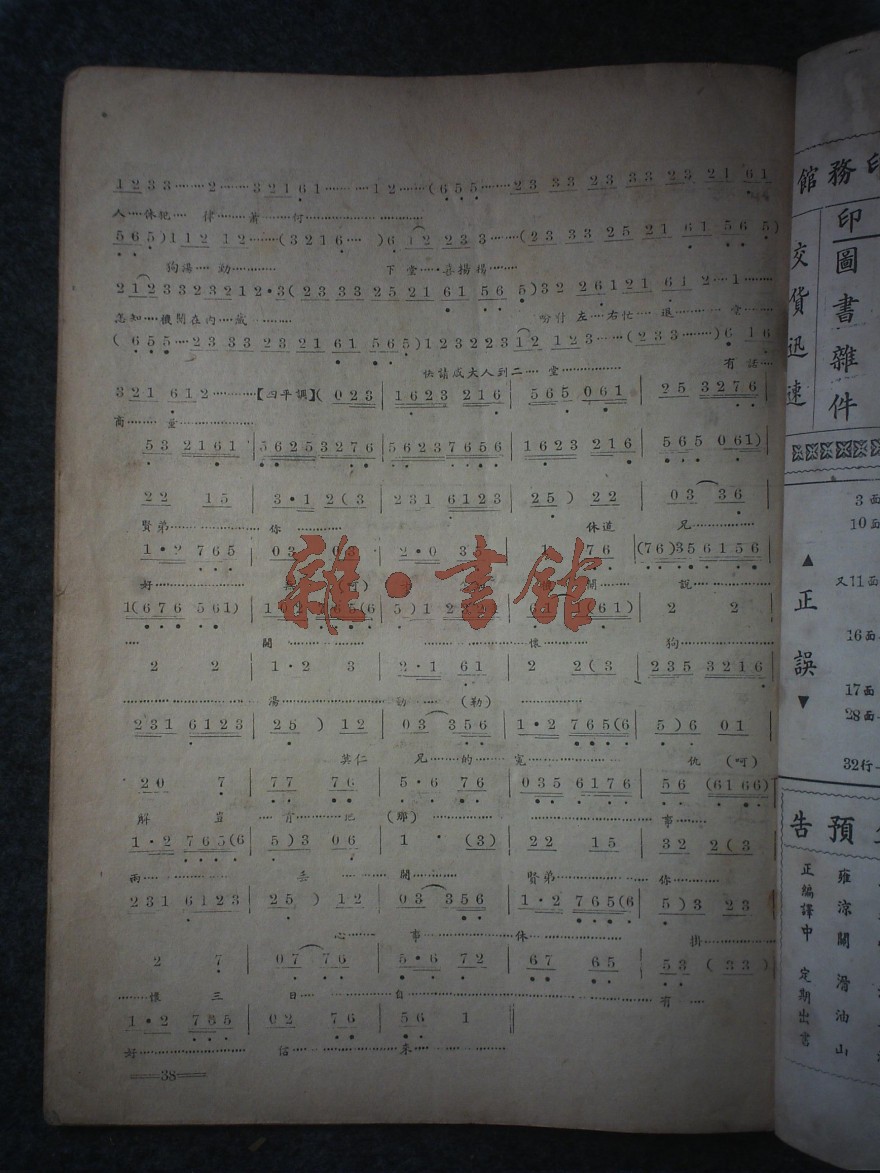 1 2 3 3 ········ 2 ······ 3 2 1 6 1 ······ 1 2 ······ ( 6 5 5 ······ 2 3 3 3 2 3 3 3 2 3 2 1 6 1
人 ···· 休犯 ···· 律 ······ 蕭 ······ 何 ························
5 6 5 ) 1 1 2 1 2 ······ ( 3 2 1 6 ···· ) 6 1 2 2 3 3 ···· ( 2 3 3 3 2 5 2 1 6 1 5 6 5 )
狗湯 ···· 勤 ············ 下堂 ···· 喜揚揚 ········
2 1 2 3 3 2 3 2 1 2 • 3 ( 2 3 3 3 2 5 2 1 6 1 5 6 5 ) 3 2 2 6 1 2 1 6 1 2 ·· 1 ······
怎知 ···· 機關在內 ···· 藏 ········ 吩付左 ···· 右忙 ···· 退 ······ 堂 ······
( 6 5 5 ···· 2 3 3 3 2 3 2 1 6 1 5 6 5 ) 1 2 3 2 2 3 1 2 1 2 3 ···· ( 2 3 3 ······ ) 6 1 6
快請成大人到二 ···· 堂 ·············· 有話 ····
3 2 1 6 1 2 ·········· 【四平調】 ( 0 2 3 | 1 6 2 3 2 1 6 | 5 6 5 0 6 1 | 2 5 3 2 7 6 |
商 ······ 量 ··········
5 3 2 1 6 1 | 5 6 2 5 3 2 7 6 | 5 6 2 3 7 6 5 6 | 1 6 2 3 2 1 6 | 5 6 5 0 6 1 ) |
2 2 1 5 | 3 • 1 2 ( 3 | 2 3 1 6 1 2 3 | 2 5 ) 2 2 | 0 3 3 6 |
賢弟 ·················· 你 ············ 休道 兄 ········
1 • 2 7 6 5 | 0 3 0 3 | 2 • 0 3 5 | 1 7 6 | ( 7 6 ) 3 5 6 1 5 6 |
好 ············ 開 ········ 說 ········
1 ( 6 7 6 5 6 1 ) | 1 0 2 7 6 5 ( 6 | 5 ) 1 2 2 2 1 | 6 1 ( 6 1 ) | 2 2 |
···· 關 ················ 懷 ············ 狗 ········
2 2 | 1 • 2 3 | 2 • 1 6 1 | 2 2 ( 3 | 2 3 5 3 2 1 6 |
···················· 湯 ·········· 勤 ···· (勒) ············
2 3 1 6 1 2 3 | 2 5 ) 1 2 | 0 3 3 5 6 | 1 • 2 7 6 5 ( 6 | 5 ) 6 0 1 |
莫仁 兄 ···· 的 ···· 寃 ·············· 仇 (呵)
2 0 7 | 7 7 7 6 | 5 • 6 7 6 | 0 3 5 6 1 7 6 | 5 6 ( 6 1 6 6 ) |
解 豈 ···· 肯 ···· 把 (那) ······················ 事 ······
1 • 2 7 6 5 ( 6 | 5 ) 3 0 6 | 1 • ( 3 ) | 2 2 1 5 | 3 2 2 ( 3 |
兩 ················ 丢 ···· 開 ········ 賢弟 ················ 你 ········
2 3 1 6 1 2 3 | 2 5 ) 1 2 | 0 3 3 5 6 | 1 • 2 7 6 5 ( 6 | 5 ) 3 2 3 |
心 ······ 事 ········ 休 ················ 掛 ······
2 7 | 0 7 7 6 | 5 • 6 7 2 | 6 7 6 5 | 5 3 ( 3 3 ) |
······ 懷 三 ······ 日 ········ 自 ·························· 有 ····
1 • 2 7 6 5 | 0 2 7 6 | 5 6 1 ‖
好 ·················· 信 ············ 來 ············
══38══
雜•書館
印務館
印圖書雜件
交貨迅速
3面
10面
▲正誤▼
又11面
16面
17面
28面
32行
預告
雍涼關 滑油山
正編譯中 定期出書